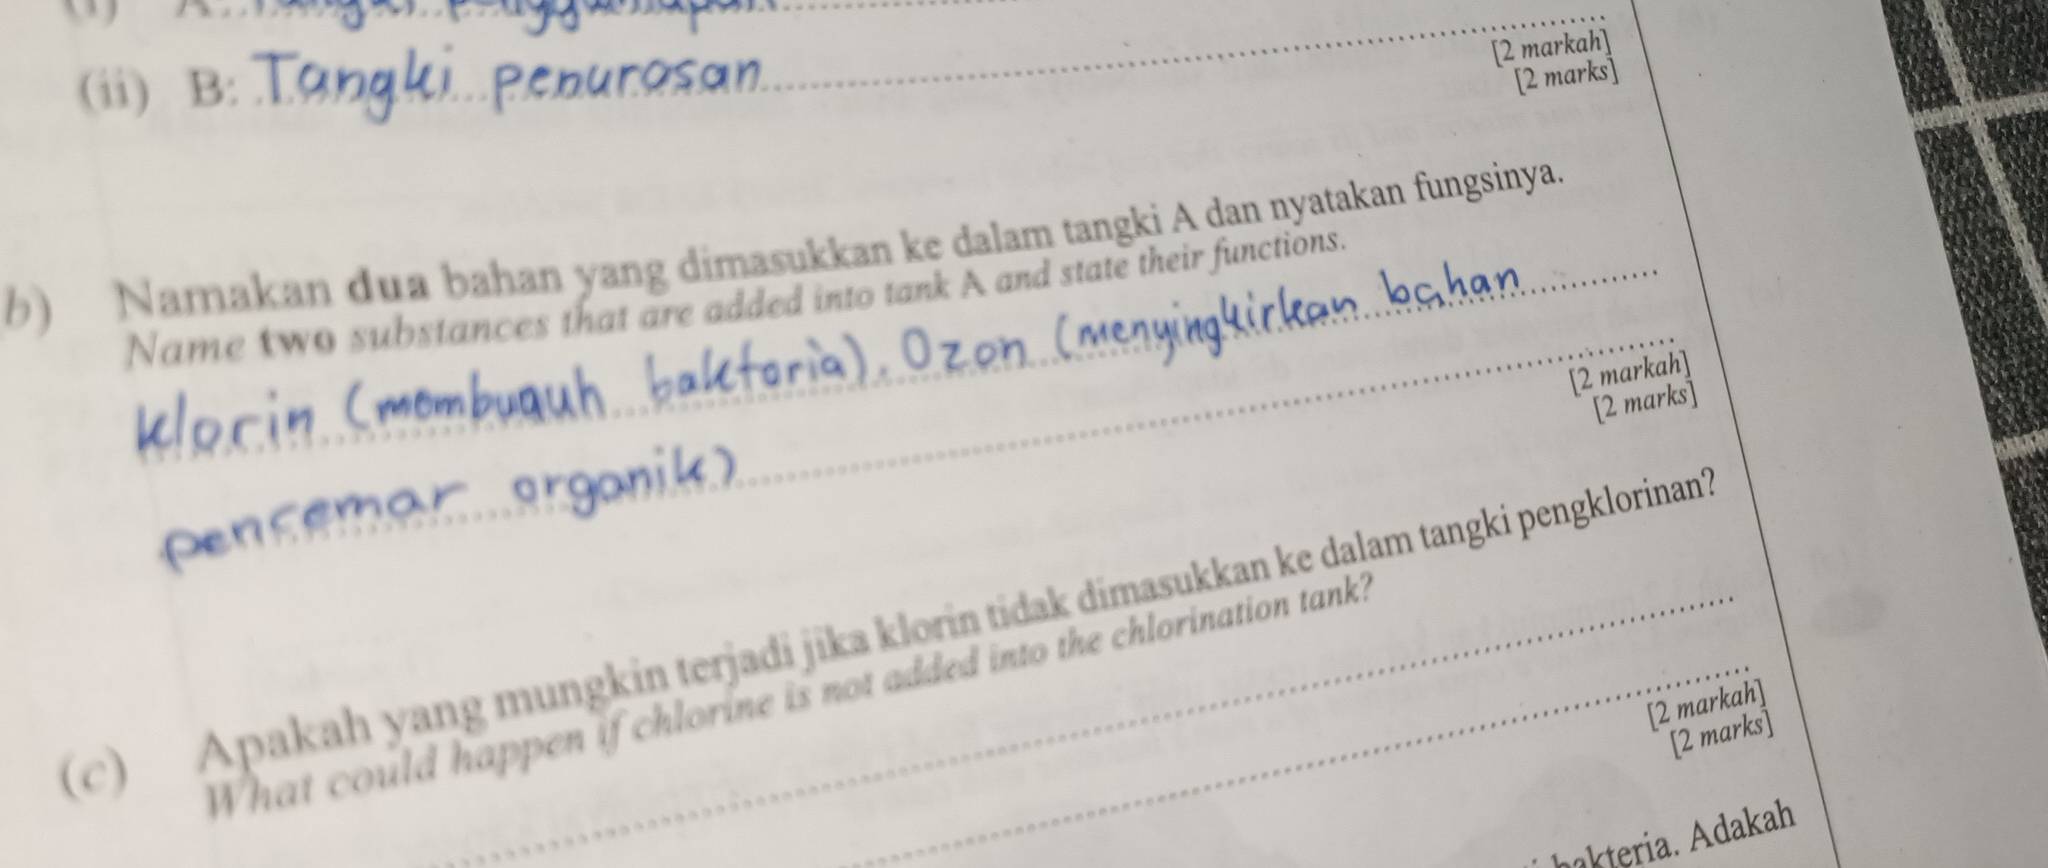 (ii) B: Tangki penurasan
[2 markah]
[2 marks]
b) Namakan dua bahan yang dimasukkan ke dalam tangki A dan nyatakan fungsinya.
Name two substances that are added into tank A and state their functions.
klorin (mombuauh bakteria). Ozon (menyingkirkan bahan
pencemar organik)
[2 markah]
[2 marks]
(c) Apakah yang mungkin terjadi jika klorin tidak dimasukkan ke dalam tangki pengklorinan?
What could happen if chlorine is not added into the chlorination tank?
[2 markah]
[2 marks]
bakteria. Adakah